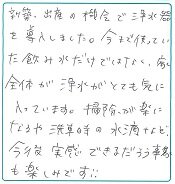 新築、出産の機会で浄水器
を導入しました。今まで使ってい
た飲み水だけではなく、家
全体が浄水がとても気に
入っています。掃除が楽に
なるや洗濯時の水滴など、
今後実感できるだろう事柄
も楽しみです!!